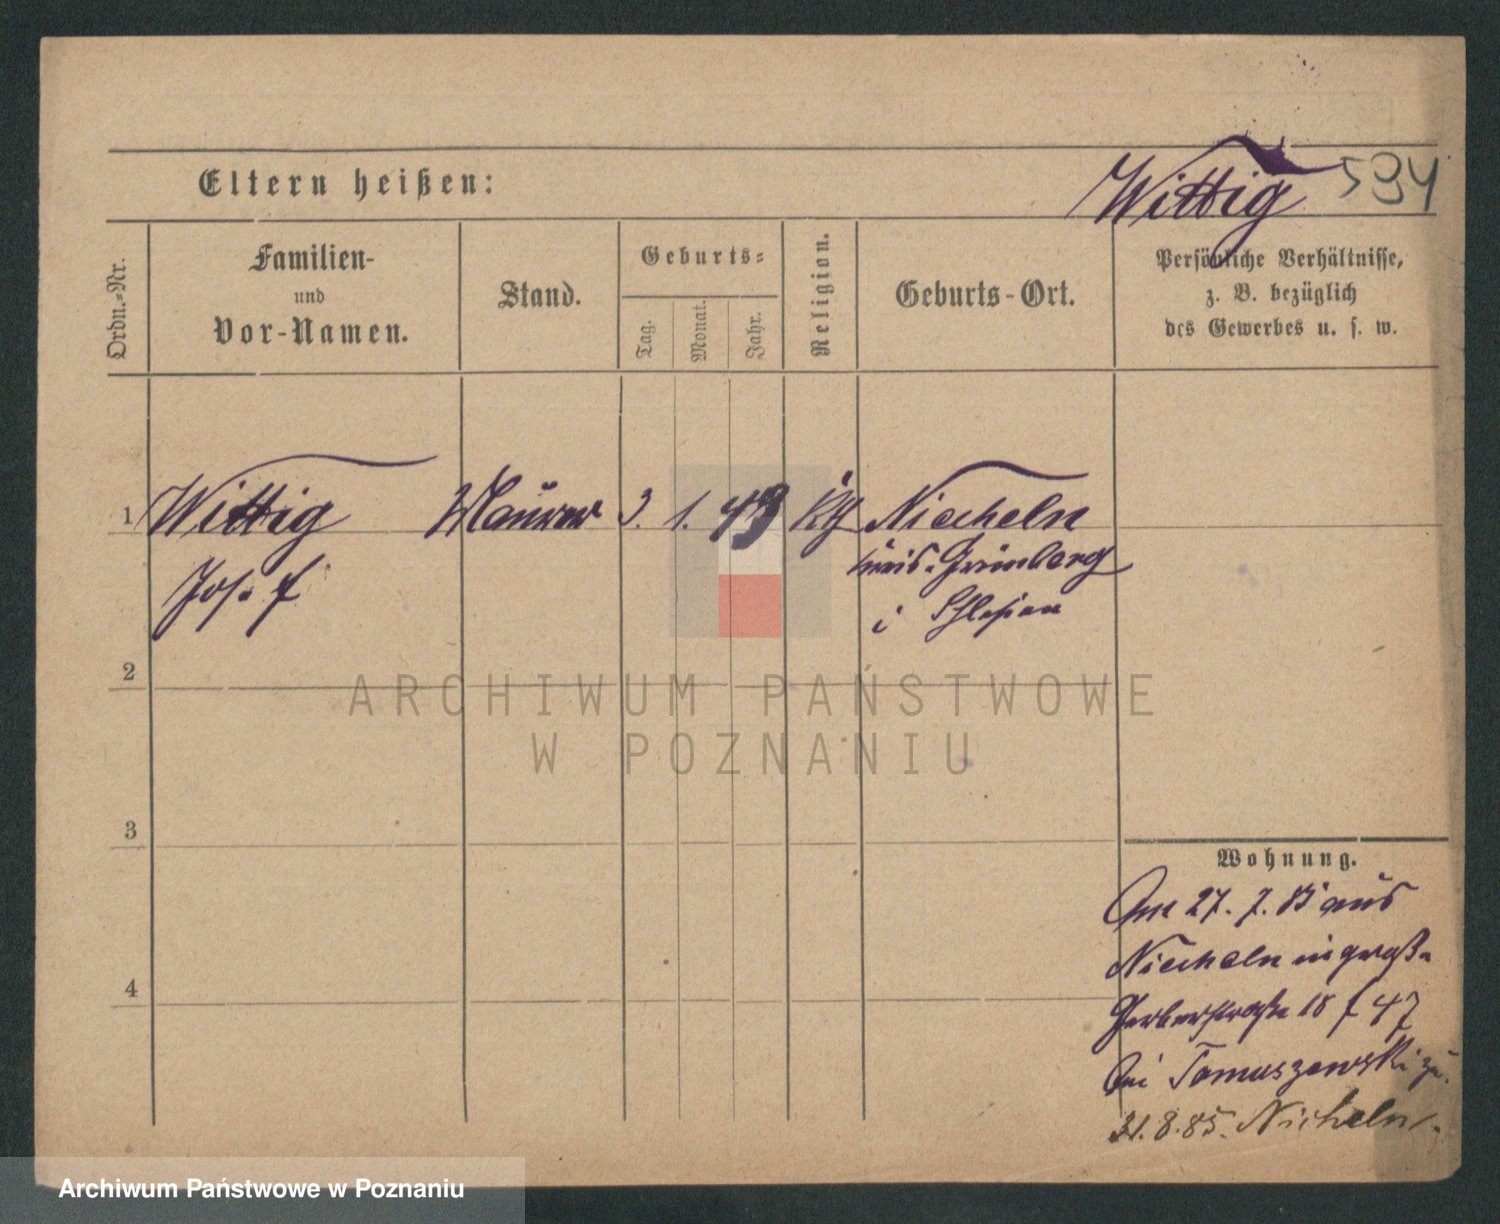 Wittig 594
Eltern heißen:
Ordn.-Nr.
Familien-
und
Vor-Namen.
Stand.
Geburts-
Tag.
Monat.
Jahr.
Religion.
Geburts-Ort.
Persönliche Verhältnisse,
z. B. bezüglich
des Gewerbes u. s. w.
1 Wittig Maurer 3. 1. 43 kth Niecheln
Kreis Grünberg
Josef
i Schlesien
2
3
4
Wohnung.
Am 27. 7. 85 aus
Niecheln in große
Gerberstraße 18 f 47
bei Tomuszewski zu.
31.8.85. Nicheln.
ARCHIWUM PAŃSTWOWE
W POZNANIU
Archiwum Państwowe w Poznaniu